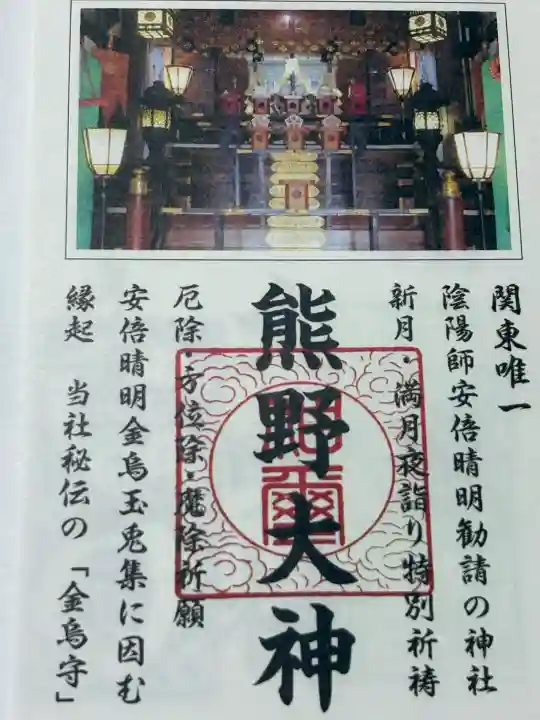 関東唯一
陰陽師安倍晴明勧請の神社
新月・満月夜詣り特別祈祷
熊野大神
厄除・方位除・魔除祈願
安倍晴明金烏玉兎集に因む
縁起 当社秘伝の「金烏守」